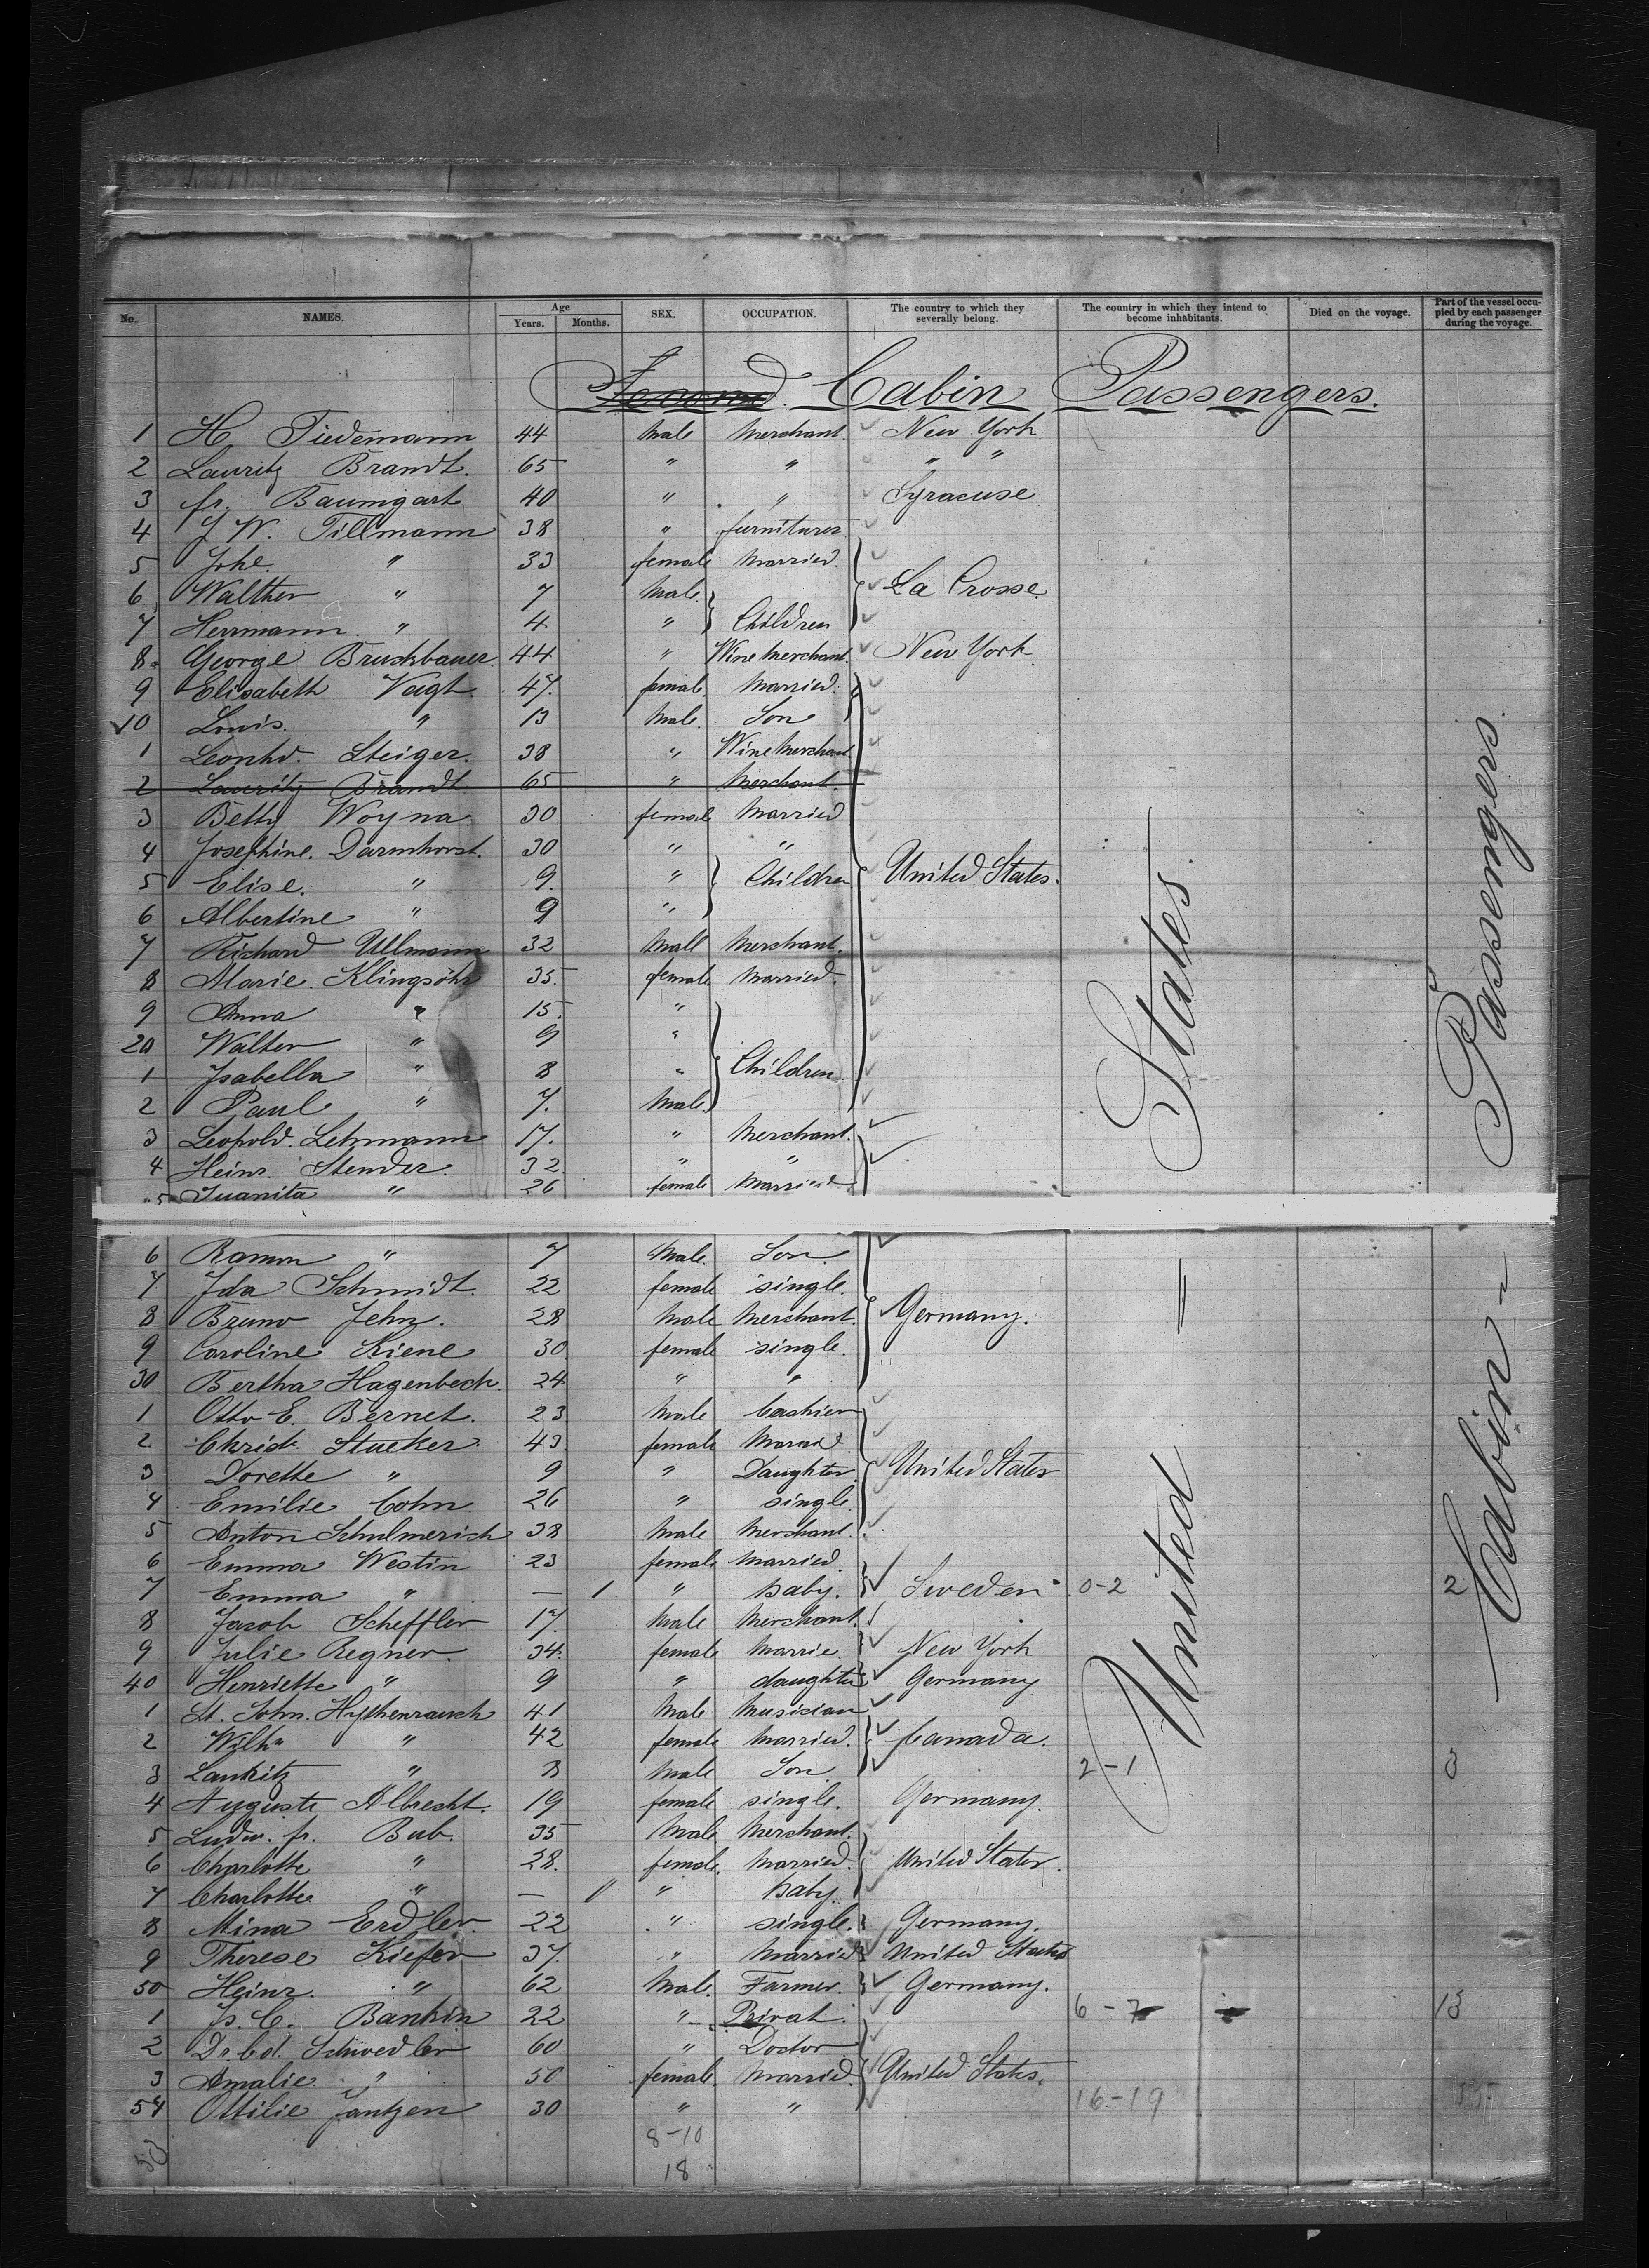 No. NAMES. Age Years. Months. SEX. OCCUPATION. The country to which they severally belong. The country in which they intend to become inhabitants. Died on the voyage. Part of the vessel occupied by each passenger during the voyage.
Second Cabin Passengers.
1 H. Tiedemann 44 Male Merchant New York
2 Lauritz Brandt. 65 " " " "
3 fr. Baumgart 40 " " Syracuse
4 J. W. Tillmann 38 " furnitures
5 Johe. " 33 female Married.
6 Walther " 7 Male La Crosse
7 Herrmann " 4 " Children
8 George Bruckbauer 44 " Wine Merchant. New York
9 Elisabeth Voigt 47. female. Married.
10 Louis. " 13 Male. Son
1 Leonhd. Steiger. 38 " Wine Merchant.
2 Lauritz Brandt 65 " Merchant.
3 Betty Woyna 30 female Married
4 Josephine. Darmhorst. 30 " "
5 Elise. " 9. " Children United States.
6 Albertine " 9 "
7 Richard Ullmann 32 Male Merchant.
8 Marie. Klingsöhr 35. female Married.
9 Anna " 15. "
20 Walter " 9 "
1 Isabella " 8 " Children
2 Paul " 7. Male
3 Leopold. Lehmann 17. " Merchant.
4 Heinr. Stender. 32. " "
5 Juanita " 26 female Married
6 Ramon " 7 Male. Son
7 Ida Schmidt. 22 female single.
8 Bruno Jehn. 28 Male Merchant. Germany.
9 Caroline Kiene 30 female single.
30 Bertha Hagenbeck. 24 " "
1 Otto E. Bernet. 23 Male Cashier
2 Christ. Stucker. 43 female Married
3 Dorette " 9 " Daughter. United States
4 Emilie Cohn 26 " single.
5 Anton Schulmerich 38 Male Merchant.
6 Emma Westin 23 female Married.
7 Emma " — 1 " Baby. Sweden 0-2 2
8 Jacob Scheffler 17. Male Merchant.
9 Julie Regner. 34. female Marrie New York
40 Henriette " 9 " daughter Germany
1 St. John. 41 Male Musician
2 Wilh " 42 female Married. Canada.
3 " 8 Male Son 2-1 3
4 Auguste Albrecht. 19 female single. Germany.
5 Ludw. fr. Bub. 35 Male Merchant.
6 Charlotte " 28. female. Married. United States.
7 Charlotte " — 1 " Baby.
8 Mina Erdler. 22 " single. Germany.
9 Therese Kiefer 37. " Married United States
50 Heinr. " 62 Male. Farmer. Germany.
1 Js. C. Bankin 22 " Privat. 6-7 13
2 Dr. Schwedler 60 " Doctor
3 Amalie. " 50 female. Married. United States.
54 Ottilie Jantzen 30 " " 16-19
53 8-10
18
United States
Cabin Passengers